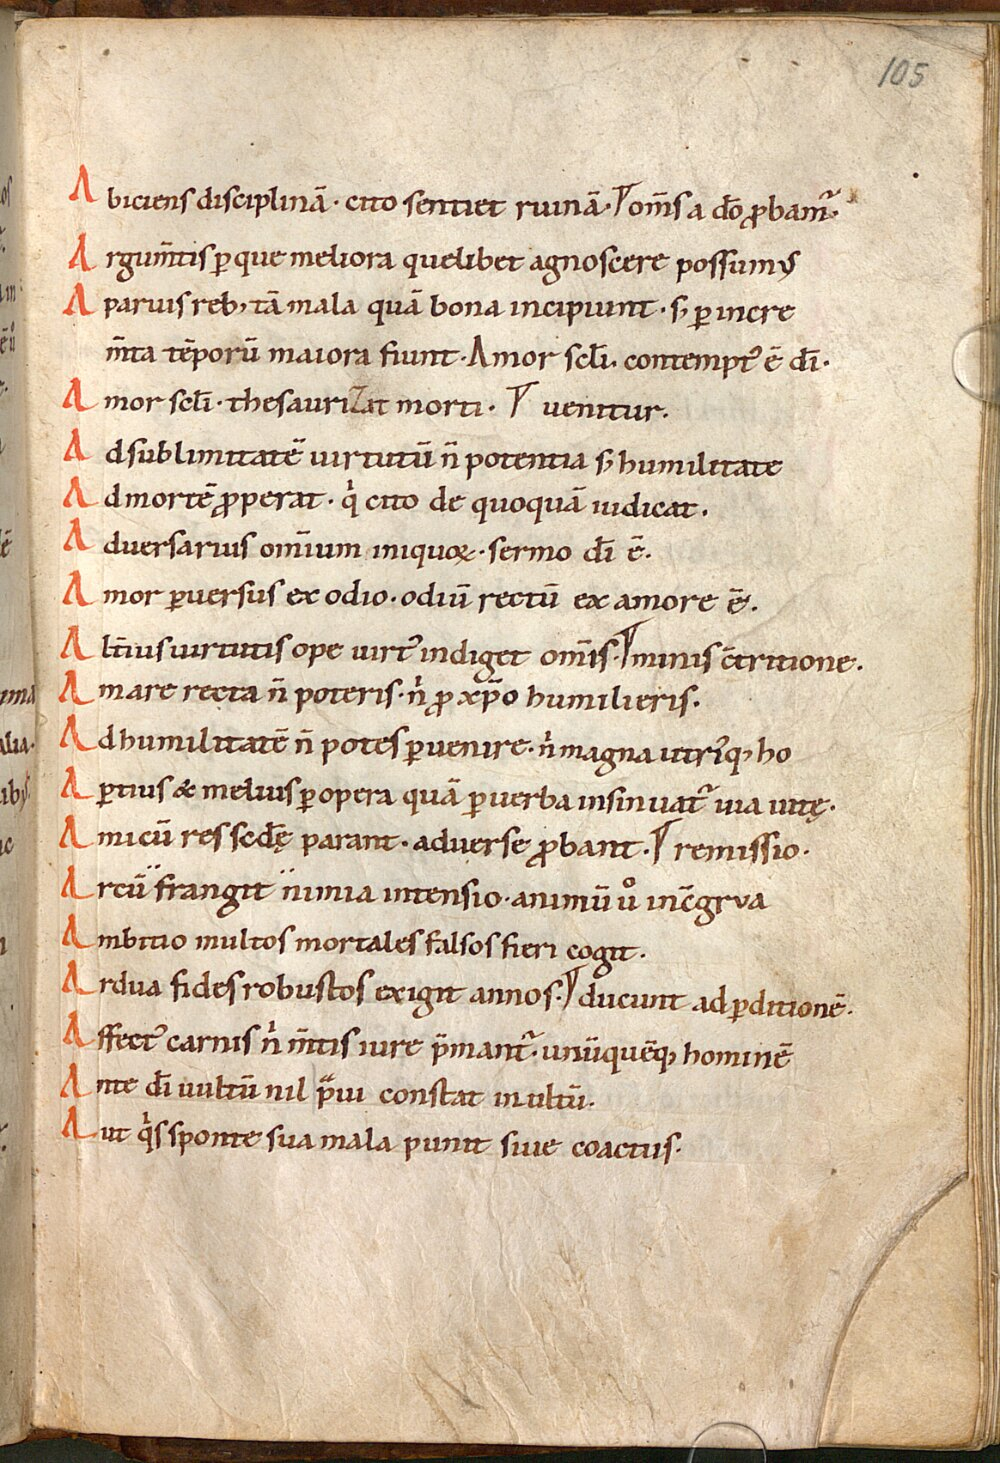 105
Abiciens disciplinā · cito sentiet ruinā · om̄s a dō ꝓbam᷑ ·
Argum̄tis ꝑ que meliora quelibet agnoscere possumꝰ
A paruis reb; tā mala quā bona incipiunt · s; ꝑ incre
m̄ta tēporū maiora fiunt · Amor sclī · contempt᷑ ē dī ·
Amor sclī · thesaurizat morti · uenitur .
Ad sublimitatē uirtutū n̄ potentia s; humilitate
Ad mortē ꝓperat · qͥ cito de quoquā iudicat .
Aduersarius om̄ium iniquoꝝ · sermo dī ē .
Amor ꝑuersus ex odio · odiū rectū ex amore ē .
Alt̄ius uirtutis ope uirt᷑ indiget om̄is · minis c̄tritione .
Amare recta n̄ poteris · nͥ ꝓ xp̄o humilieris .
Ad humilitatē n̄ potes ꝑuenire · nͥ magna utriq; ho
Aꝑtius & melius ꝑ opera quā ꝑ uerba insinuat᷑ uia uitę ·
Amicū res scd̄ę parant · aduerse ꝓbant · remissio ·
Arcū frangit nimia intensio · animū uͦ inc̄grua
Ambitio multos mortales falsos fieri cogit .
Ardua fides robustos exigit annos · ducunt ad ꝑditionē .
Affect᷑ carnis nͥ m̄tis iure p̄mant᷑ · unūquēq; hominē
Ante dī uultū nil pᷓui constat inultū .
Aut qͥs sponte sua mala punit siue coactus .